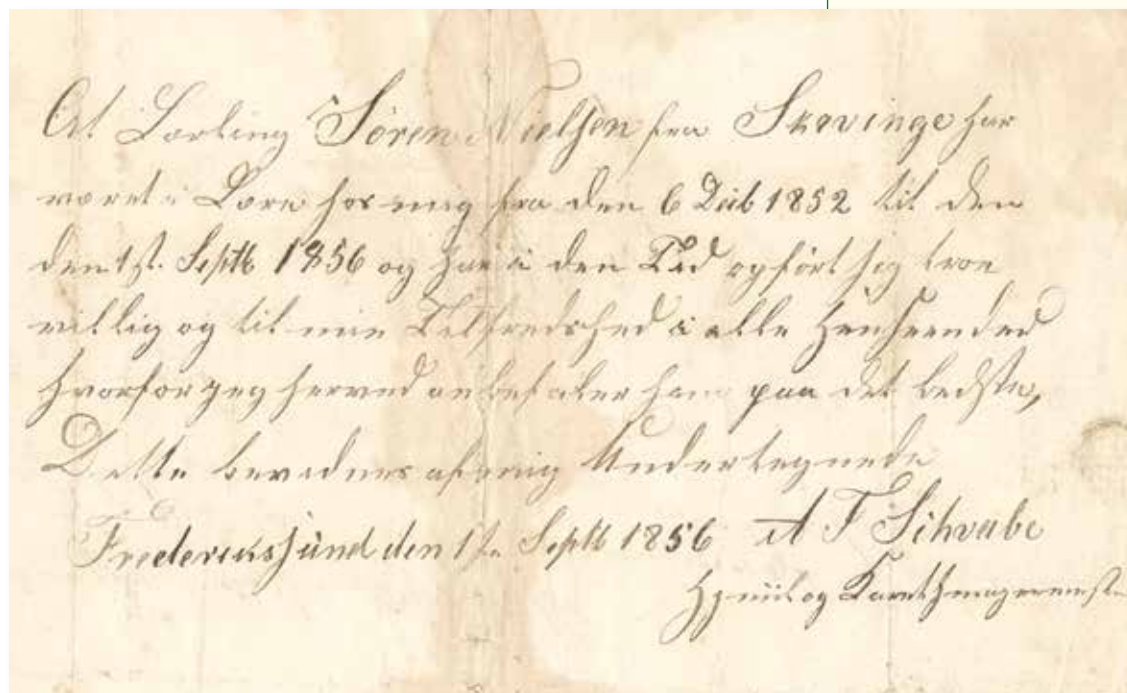 At Lærling Sören Nielsen fra Skævinge har
været i Lære hos mig fra den 6 Decb 1852 til den
den 1st. Septb 1856 og har i den Tid opført sig troe
villig og til min Tilfredshed i alle Henseender
hvorfor jeg herved anbefaler ham paa det bedste,
Dette bevidnes af mig Undertegnede
Frederikssund den 1st. Septb 1856 A F Schvabe
Hjuul og Karethmagermest.